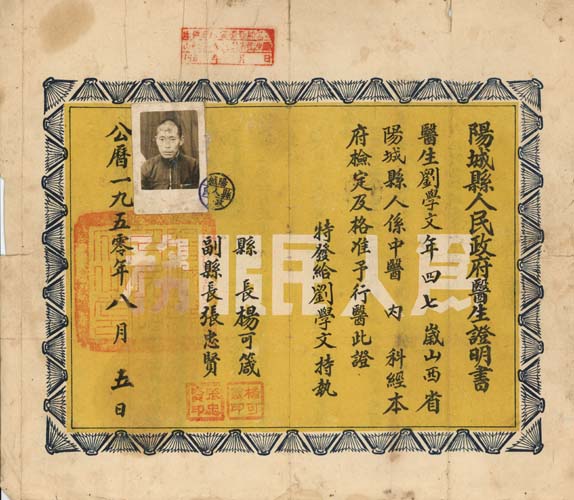 陽城縣人民政府醫生證明書
醫生劉學文年四七歲山西省
陽城縣人係中醫內科經本
府檢定及格准予行醫此證
特發給劉學文持執
縣長楊可箴
副縣長張忠賢
公曆一九五零年八月五日
為人民服務